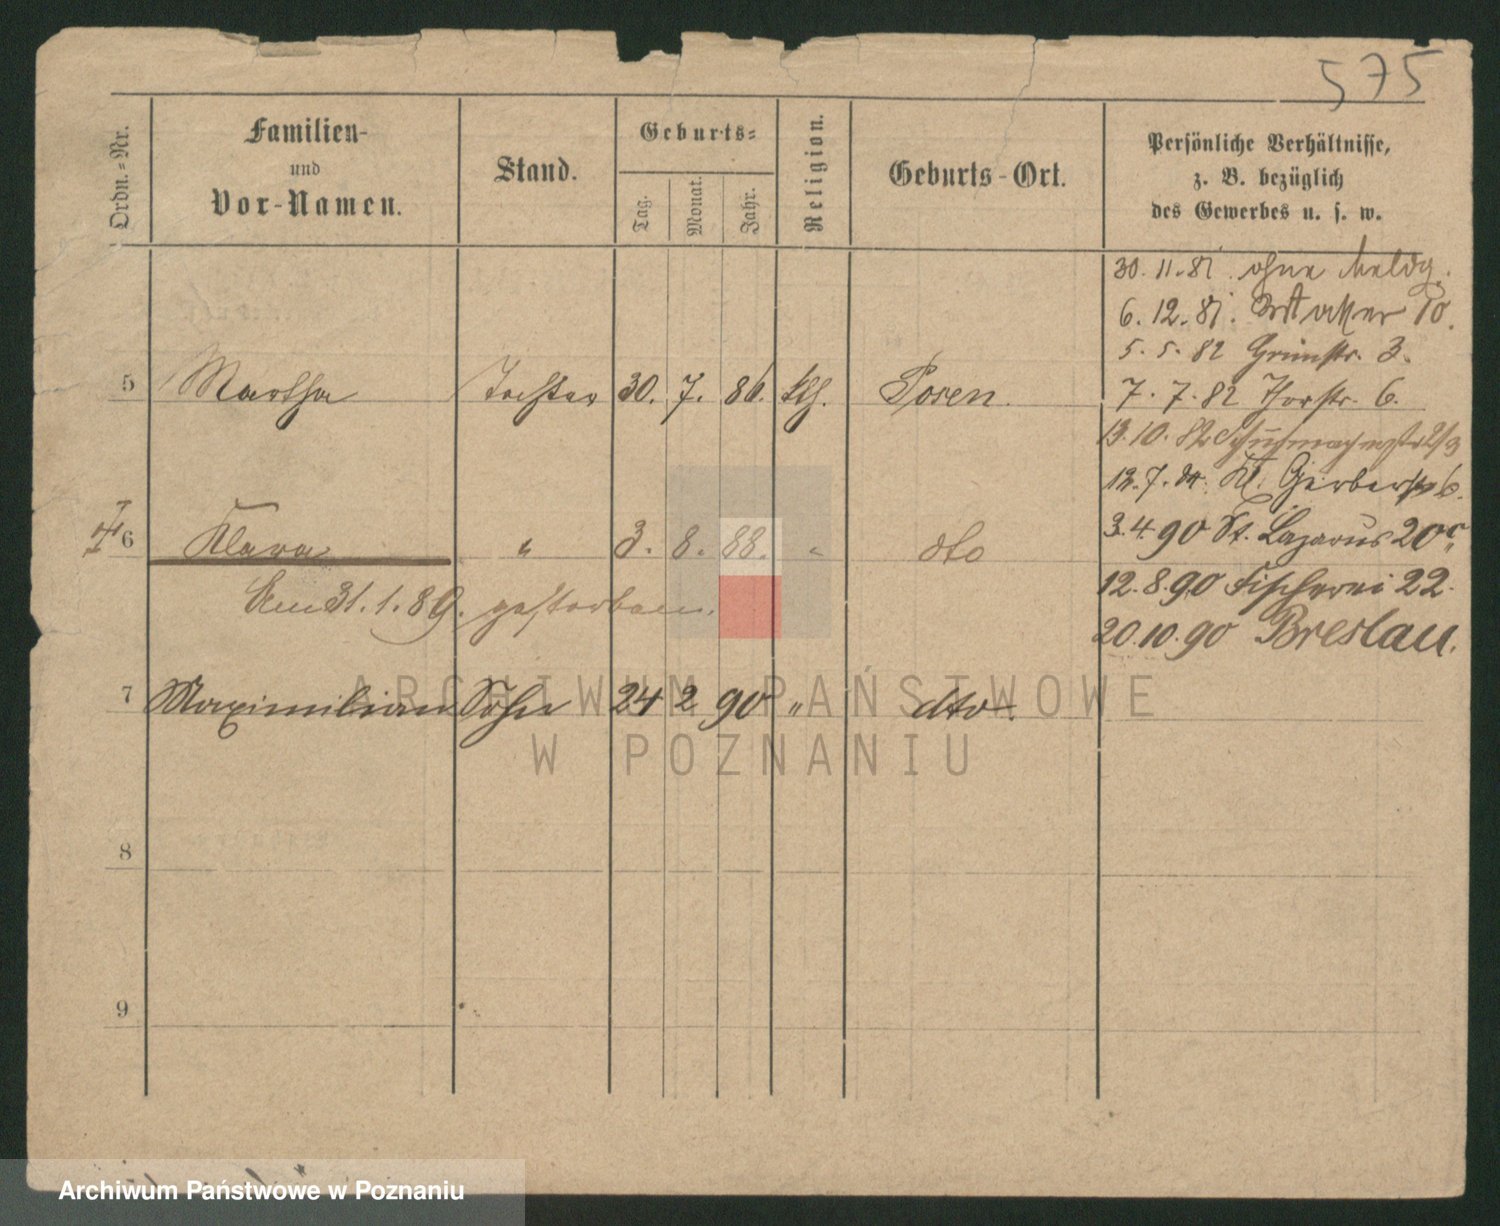 575
Ordn.-Nr.
Familien-
und
Vor-Namen.
Stand.
Geburts-
Tag.
Monat.
Jahr.
Religion.
Geburts-Ort.
Persönliche Verhältnisse,
z. B. bezüglich
des Gewerbes u. s. w.
30. 11. 81. ohne Meldg.
6. 12. 81. 10.
5. 5. 82 Grünstr. 3.
5 Martha Tochter 30. 7. 86. kth. Posen.
7. 7. 82 Thorstr. 6.
13. 10. 82 Schuhmacherstr.
12. 7. 84. Kl. Gerberstr 6.
6 Klara " 3. 8. 88. " dto
3. 4. 90 St. Lazarus 20c
Am 31. 1. 89. gestorben.
12. 8. 90 Fischerei 22.
20. 10. 90 Breslau.
7 Maximilian Sohn 24 2 90 " dto.
8
9
ARCHIWUM PAŃSTWOWE
W POZNANIU
Archiwum Państwowe w Poznaniu